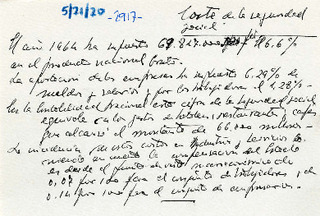 5/21/20 -2917-
Coste de la seguridad
social
El año 1964 ha supuesto 69.847.000.000 pts 6.6%
en el producto nacional bruto.
La aportación de las empresas ha supuesto 6.28% de
sueldos y salarios y por los trabajadores el 1.28%.
En la contabilidad nacional esta cifra de la seguridad social
equivale a los gastos de hoteles, restaurantes y cafés
que alcanzó el montante de 66.000 millones.
La incidencia de estos costes en industria y servicios
en cuenta la compensación del Estado
es desde el punto de vista macroeconómico de
0,07 por 100 para el conjunto de trabajadores y de
0.14 por 100 para el conjunto de empresarios.